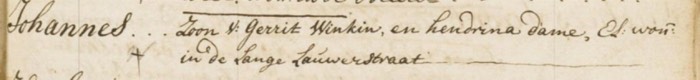 Johannes. . . Zoon v: Gerrit Winkin, en hendrina dame, El: won:
in de Lange Lauwerstraat